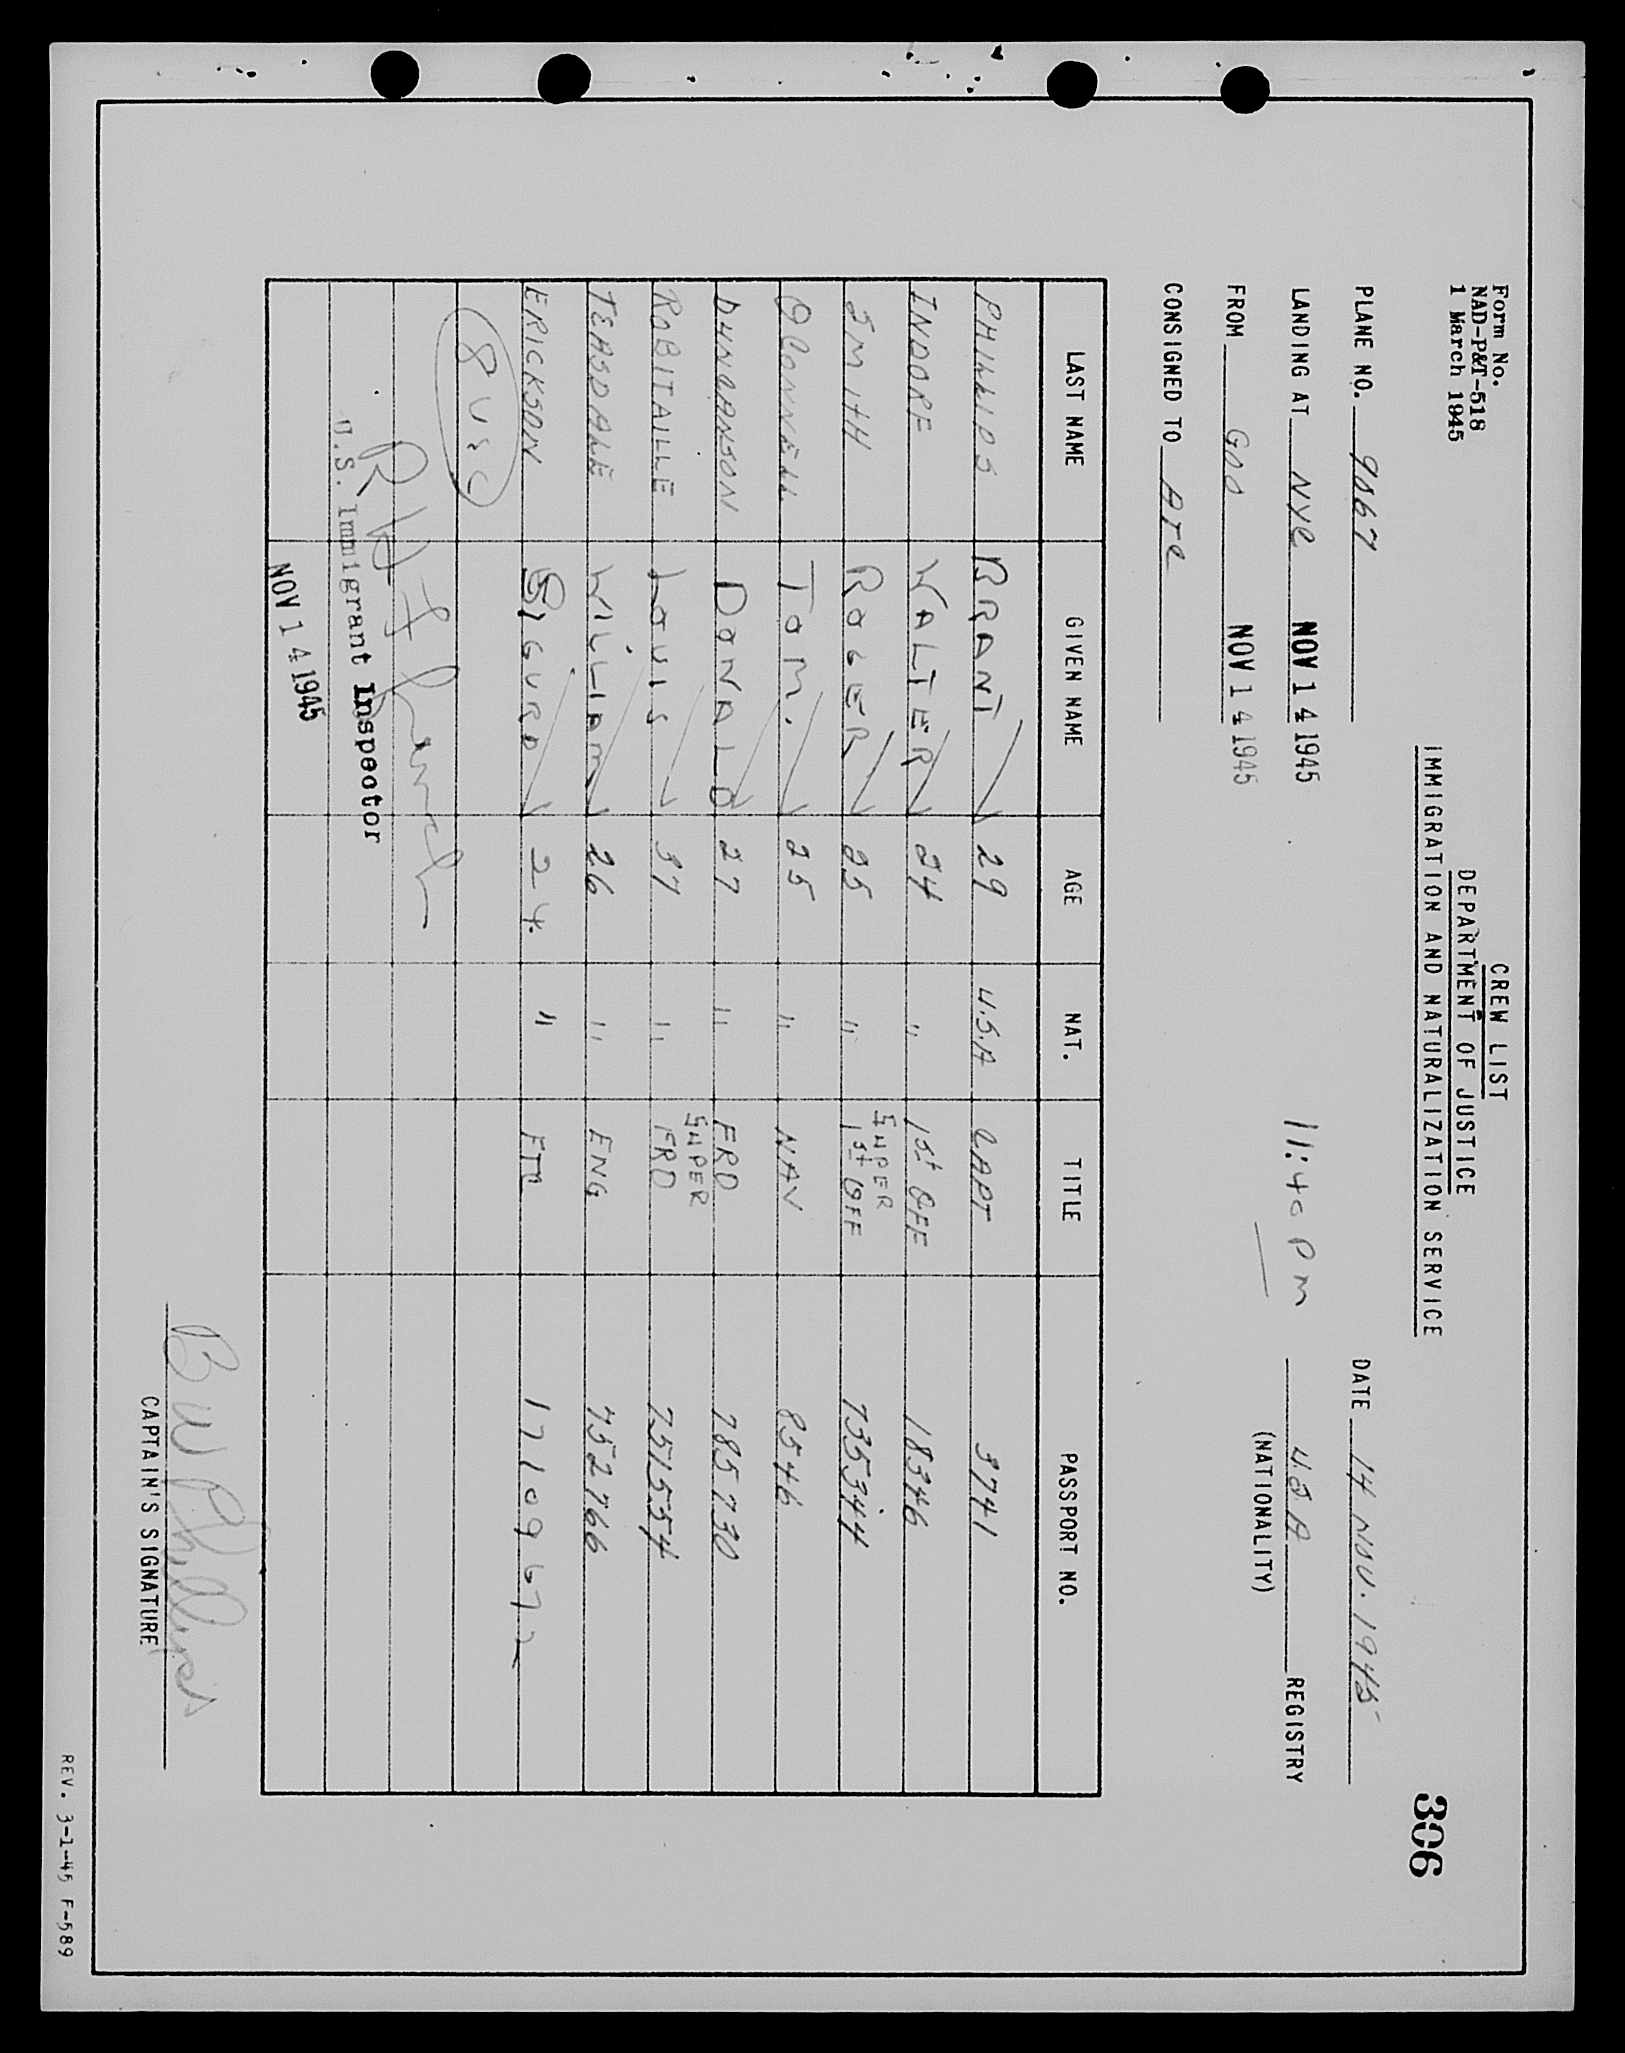 Form No.
NAD-P&T-518
1 March 1945
CREW LIST
DEPARTMENT OF JUSTICE
IMMIGRATION AND NATURALIZATION SERVICE
306
PLANE NO. 9067
DATE 14 NOV. 1945
LANDING AT NYC NOV 14 1945
11:40 PM
U.S.A REGISTRY
(NATIONALITY)
FROM GOO NOV 14 1945
CONSIGNED TO ATC
LAST NAME GIVEN NAME AGE NAT. TITLE PASSPORT NO.
PHILLIPS BRANT 29 U.S.A CAPT 3741
INDORF WALTER 24 " 1st OFF 18346
SMITH ROGER 25 " SUPER 1st OFF 735344
O'CONNELL TOM. 25 " NAV 8546
DUNCANSON DONALD 27 " FRO 785730
ROBITAILLE LOUIS 37 " SUPER FRO 751554
TEASDALE WILLIAM 26 " ENG 752766
ERICKSON SIGURD 24. " FTM 17109672
8 USC
U.S. Immigrant Inspector
NOV 14 1945
B W Phillips
CAPTAIN'S SIGNATURE
REV. 3-1-45 F-589